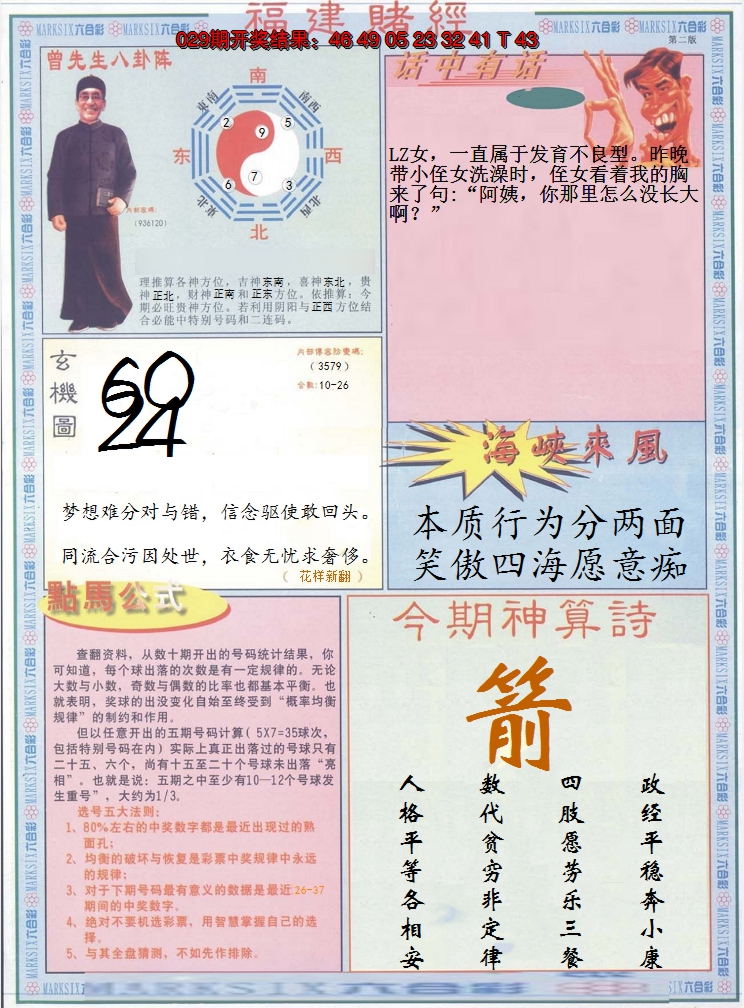 福建賭經
029期开奖结果：46 49 05 23 32 41 T 43
第二版
曾先生八卦阵
南
東南
南西
2
9
5
东
西
6
7
3
東北
北西
北
内部密碼:
(936120)
理推算各神方位，吉神东南，喜神东北，贵
神正北，财神正南和正东方位。依推算：今
期必旺贵神方位。若利用阴阳与正西方位结
合必能中特别号码和二连码。
话中有话
LZ女，一直属于发育不良型。昨晚
带小侄女洗澡时，侄女看着我的胸
来了句:“阿姨，你那里怎么没长大
啊？”
玄機圖
60
24
内部傳密防密碼:
（3579）
合数:10-26
梦想难分对与错，信念驱使敢回头。
同流合污因处世，衣食无忧求奢侈。
（ 花样新翻 ）
海峽來風
本质行为分两面
笑傲四海愿意痴
點馬公式
查翻资料，从数十期开出的号码统计结果，你
可知道，每个球出落的次数是有一定规律的。无论
大数与小数，奇数与偶数的比率也都基本平衡。也
就表明，奖球的出没变化自始至终受到“概率均衡
规律”的制约和作用。
但以任意开出的五期号码计算( 5X7=35球次，
包括特别号码在内) 实际上真正出落过的号球只有
二十五、六个，尚有十五至二十个号球未出落“亮
相”。也就是说：五期之中至少有10—12个号球发
生重号”，大约为1/3。
选号五大法则：
1、80%左右的中奖数字都是最近出现过的熟
面孔；
2、均衡的破坏与恢复是彩票中奖规律中永远
的规律；
3、对于下期号码最有意义的数据是最近26-37
期间的中奖数字。
4、绝对不要机选彩票，用智慧掌握自己的选
择。
5、与其全盘猜测，不如先作排除。
今期神算詩
箭
人格平等各相安
数代贫穷非定律
四肢愿劳乐三餐
政经平稳奔小康
MARKSIX六合彩